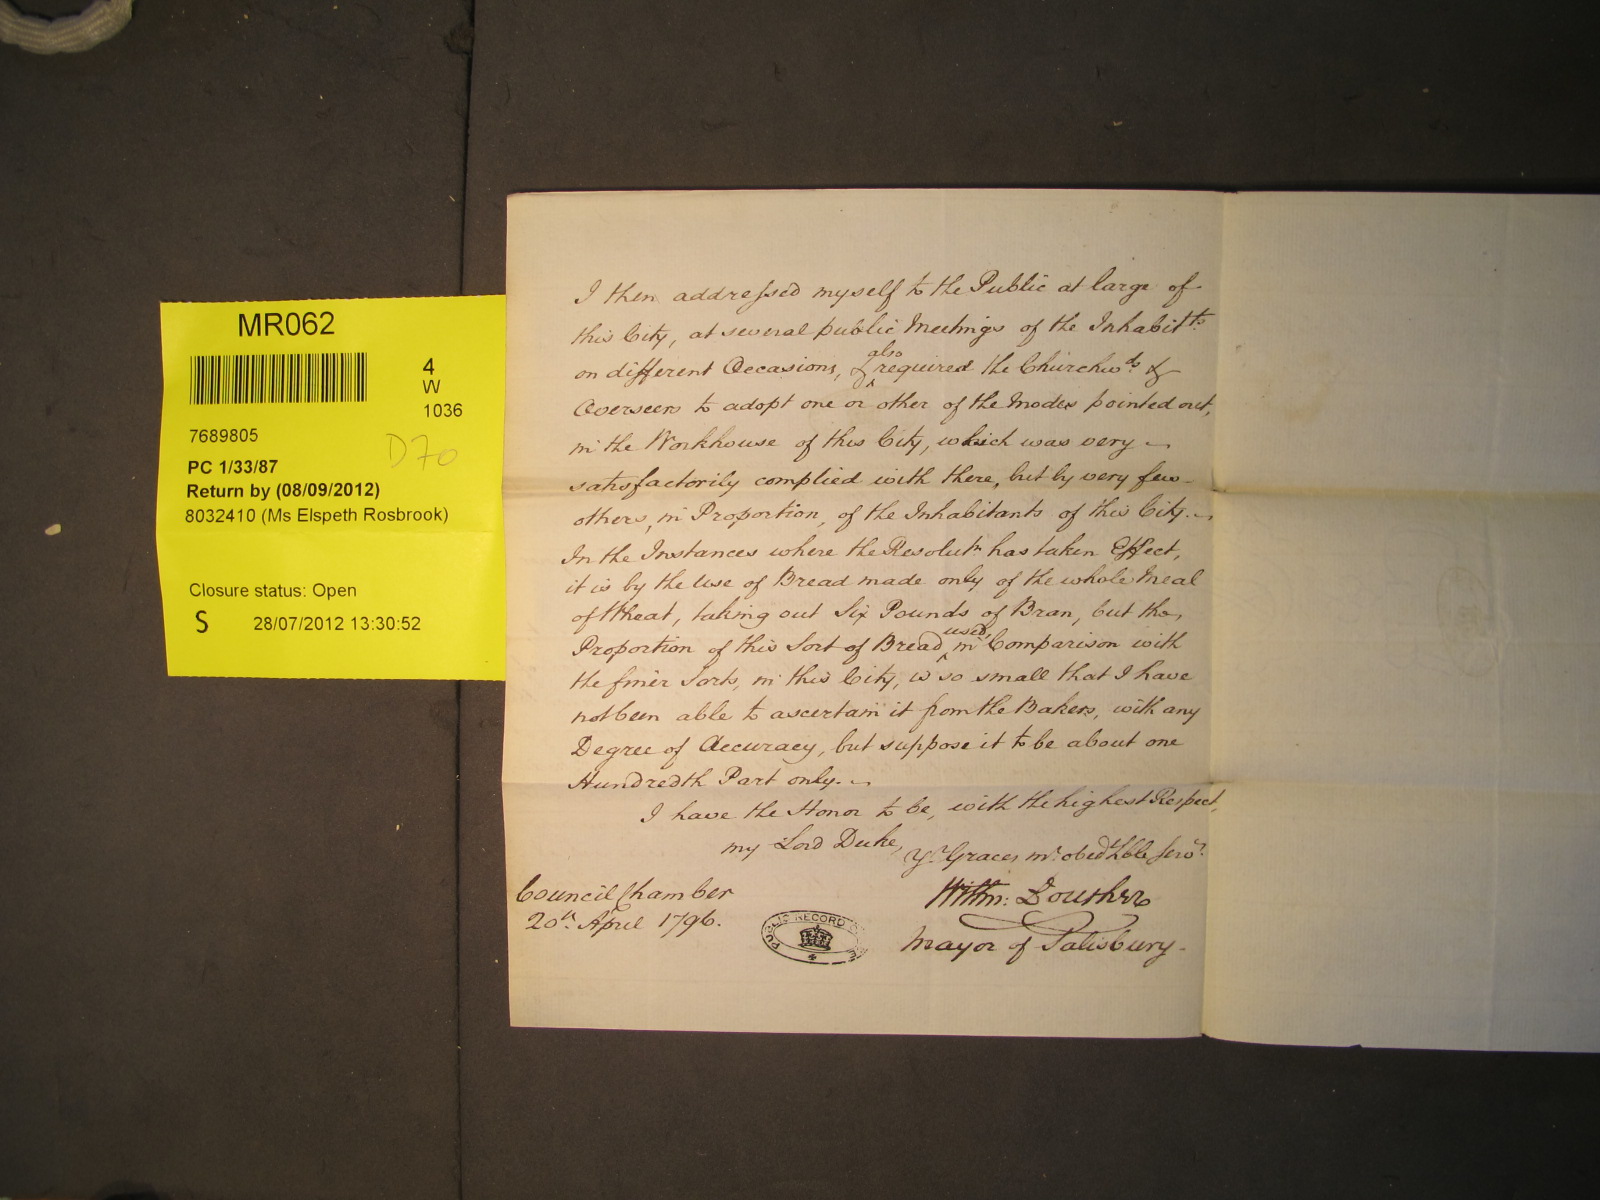 MR062
4
W
1036
7689805
D70
PC 1/33/87
Return by (08/09/2012)
8032410 (Ms Elspeth Rosbrook)
Closure status: Open
S 28/07/2012 13:30:52
I then addressed myself to the Public at large of
this City, at several public Meetings of the Inhabitts.
on different Occasions, & also required the Churchwds. &
Overseers to adopt one or other of the Modes pointed out,
in the Workhouse of this City, which was very
satisfactorily complied with there, but by very few
others, in Proportion, of the Inhabitants of this City.
In the Instances where the Resolutn. has taken Effect,
it is by the Use of Bread made only of the whole Meal
of Wheat, taking out Six Pounds of Bran, but the
Proportion of this Sort of Bread used, in Comparison with
the finer Sorts, in this City, is so small that I have
not been able to ascertain it from the Bakers, with any
Degree of Accuracy, but suppose it to be about one
Hundredth Part only.
I have the Honor to be, with the highest Respect,
my Lord Duke,
Yr. Graces mt. obedt. hble Servt.
Council Chamber
20th. April 1796.
PUBLIC RECORD
Mayor of Salisbury